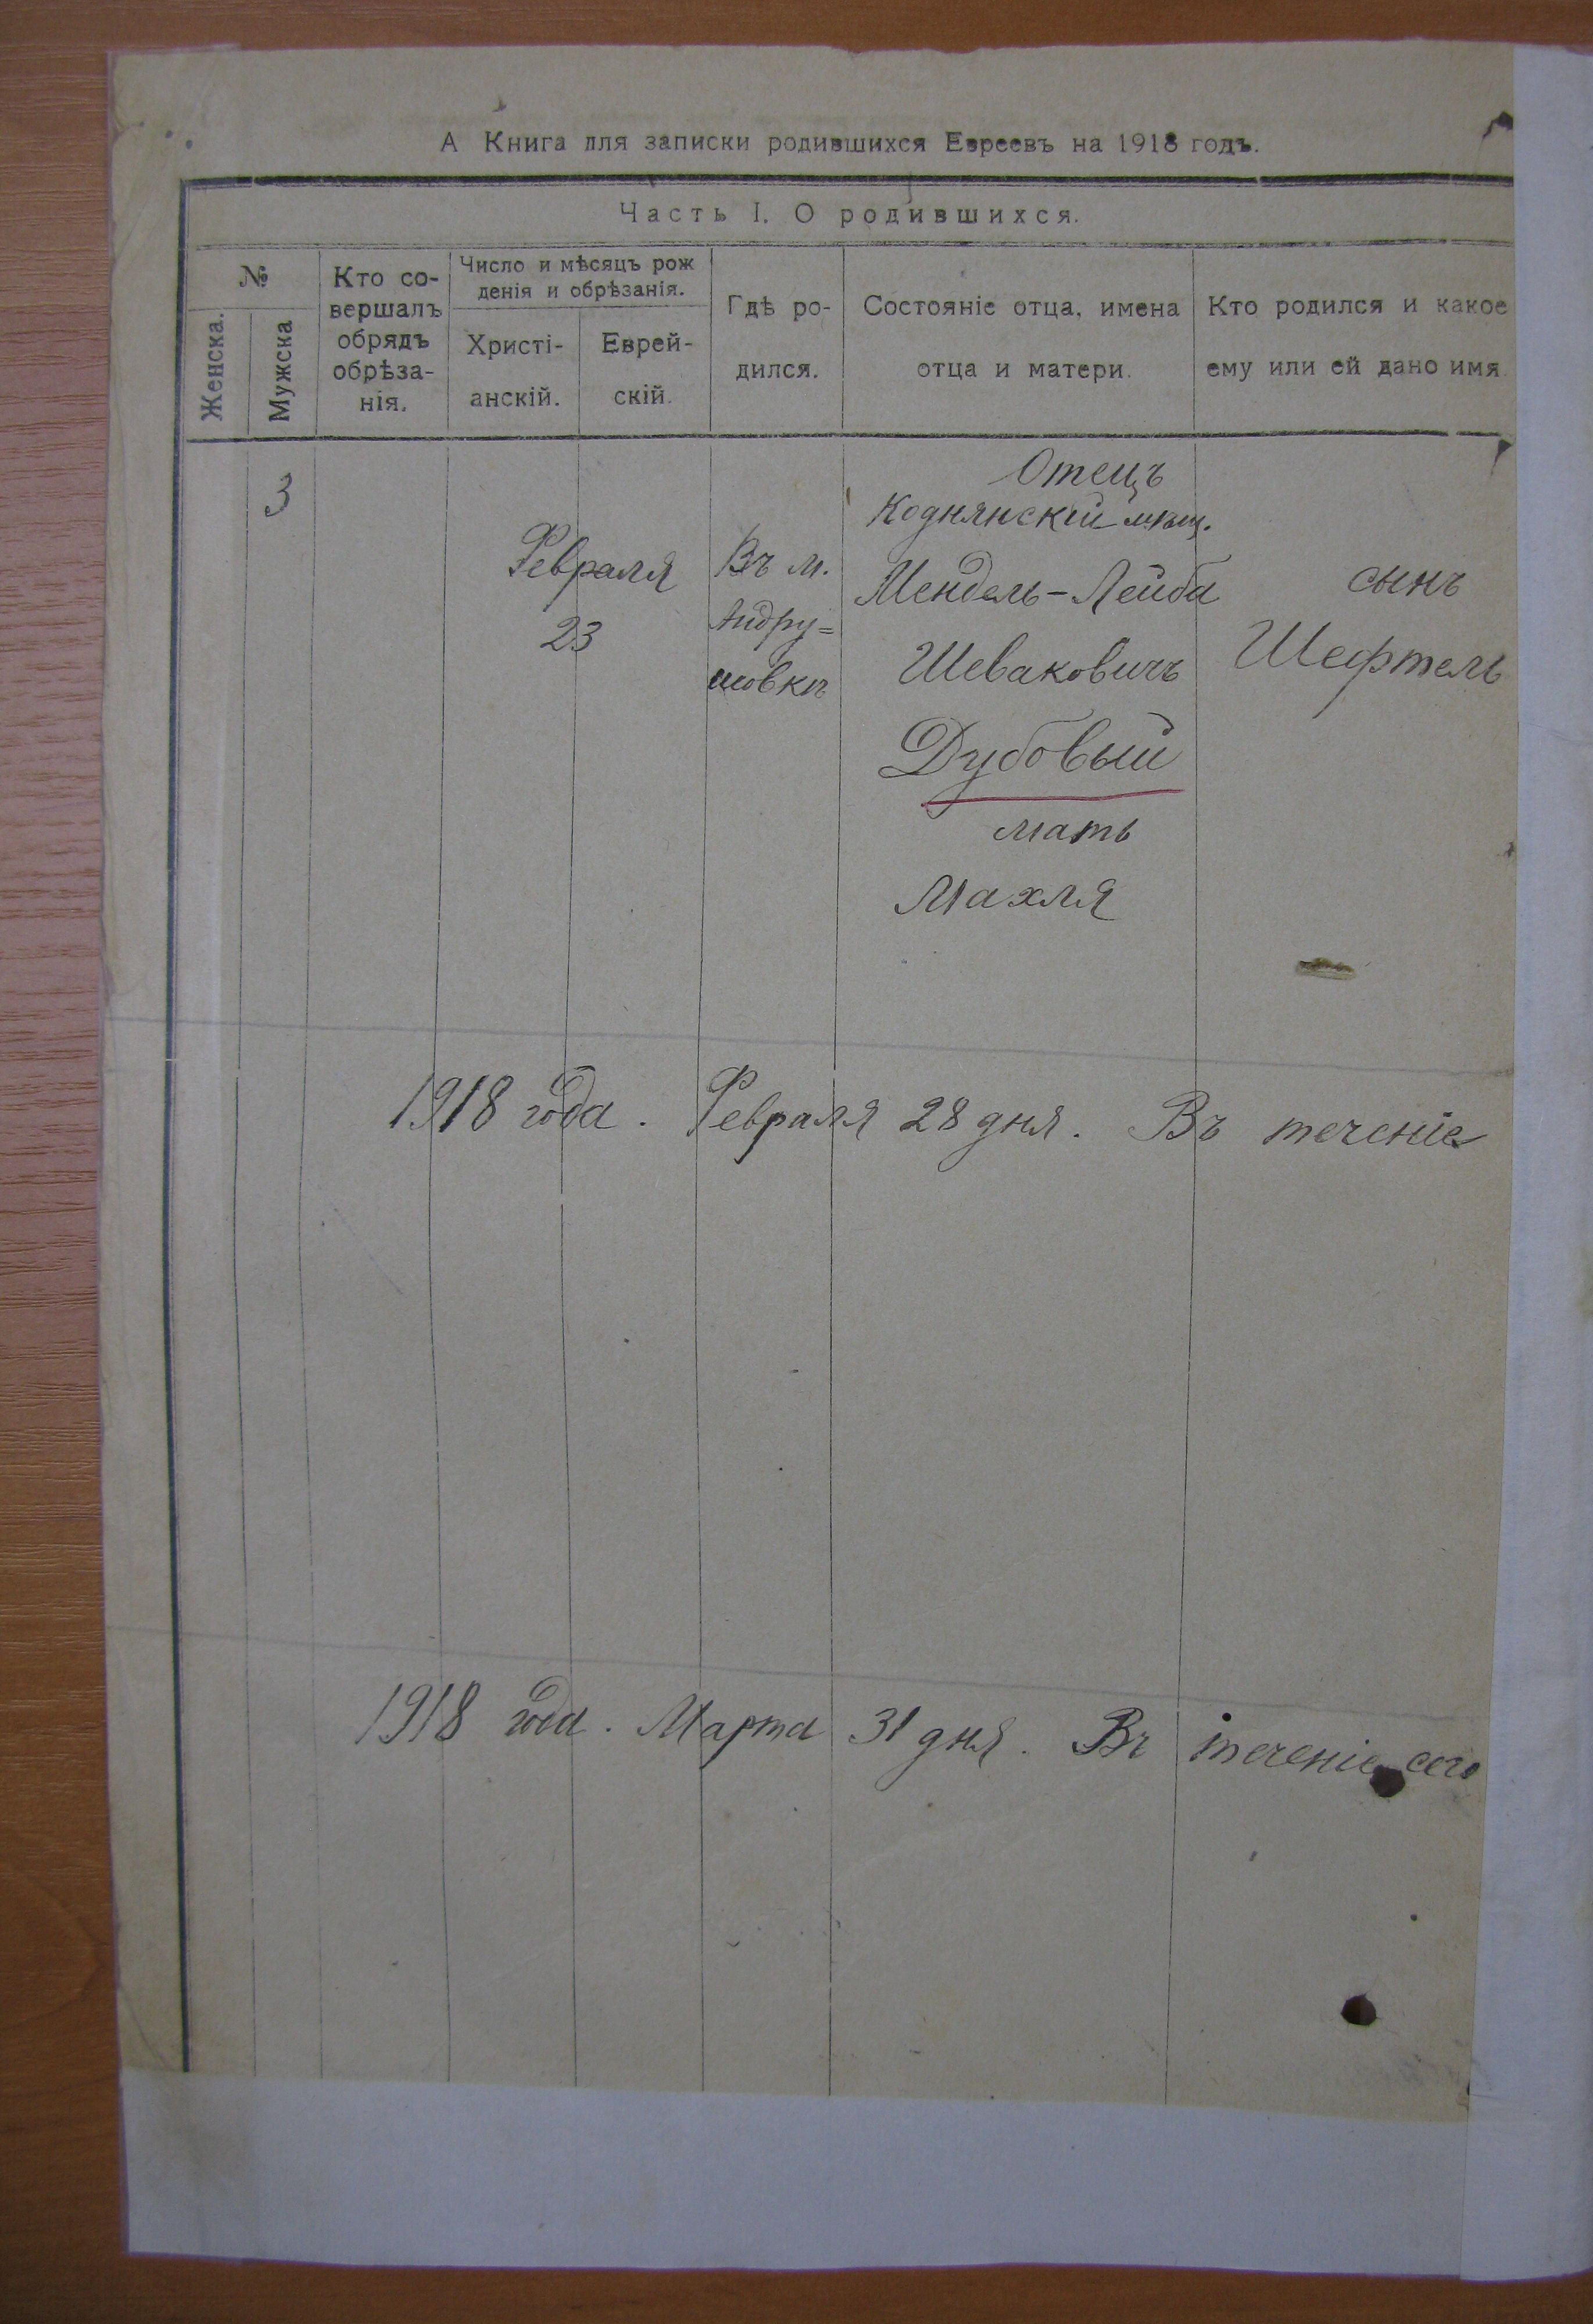 А Книга для записки родившихся Евреевъ на 1918 годъ.
Часть I. О родившихся.
№
Женска.
Мужска
Кто со-
вершалъ
обрядъ
обрѣза-
нія.
Число и мѣсяцъ рож
денія и обрѣзанія.
Христі-
анскій.
Еврей-
скій.
Гдѣ ро-
дился.
Состояніе отца, имена
отца и матери.
Кто родился и какое
ему или ей дано имя.
3
Февраля
23
Въ м.
Андру=
шовкѣ
Отецъ
Коднянскій мѣщ.
Мендель-Лейба
Шеваковичъ
Дубовый
мать
Махля
сынъ
Шефтель
1918 года. Февраля 28 дня. Въ теченіе
1918 года. Марта 31 дня. Въ теченіе сего